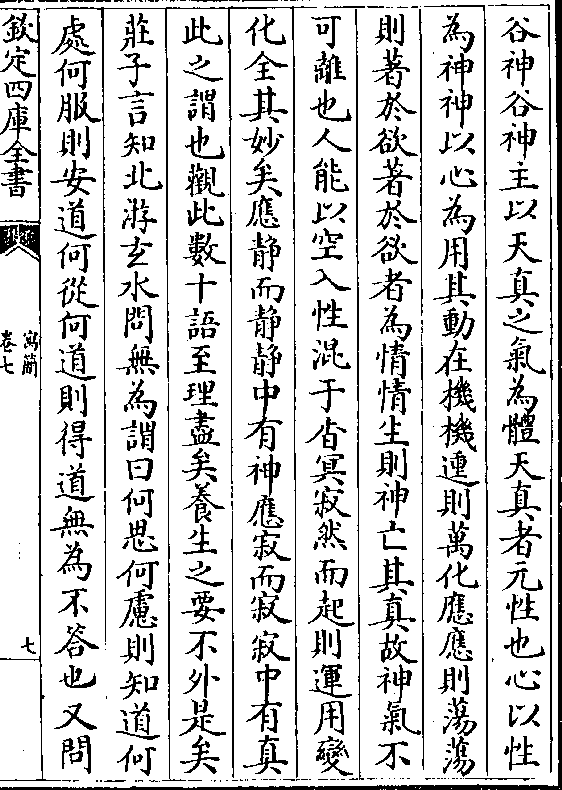 谷神谷神主以天真之氣為體天真者元性也心以性
為神神以心為用其動在機機運則萬化應應則蕩蕩
則著於欲著於欲者為情情生則神亡其真故神氣不
可離也人能以空入性混于杳冥寂然而起則運用變
化全其妙矣應静而静静中有神應寂而寂寂中有真
此之謂也觀此數十語至理盡矣養生之要不外是矣
莊子言知北游玄水問無為謂曰何思何慮則知道何
處何服則安道何從何道則得道無為不答也又問
欽定四庫全書
寓簡
卷七
七